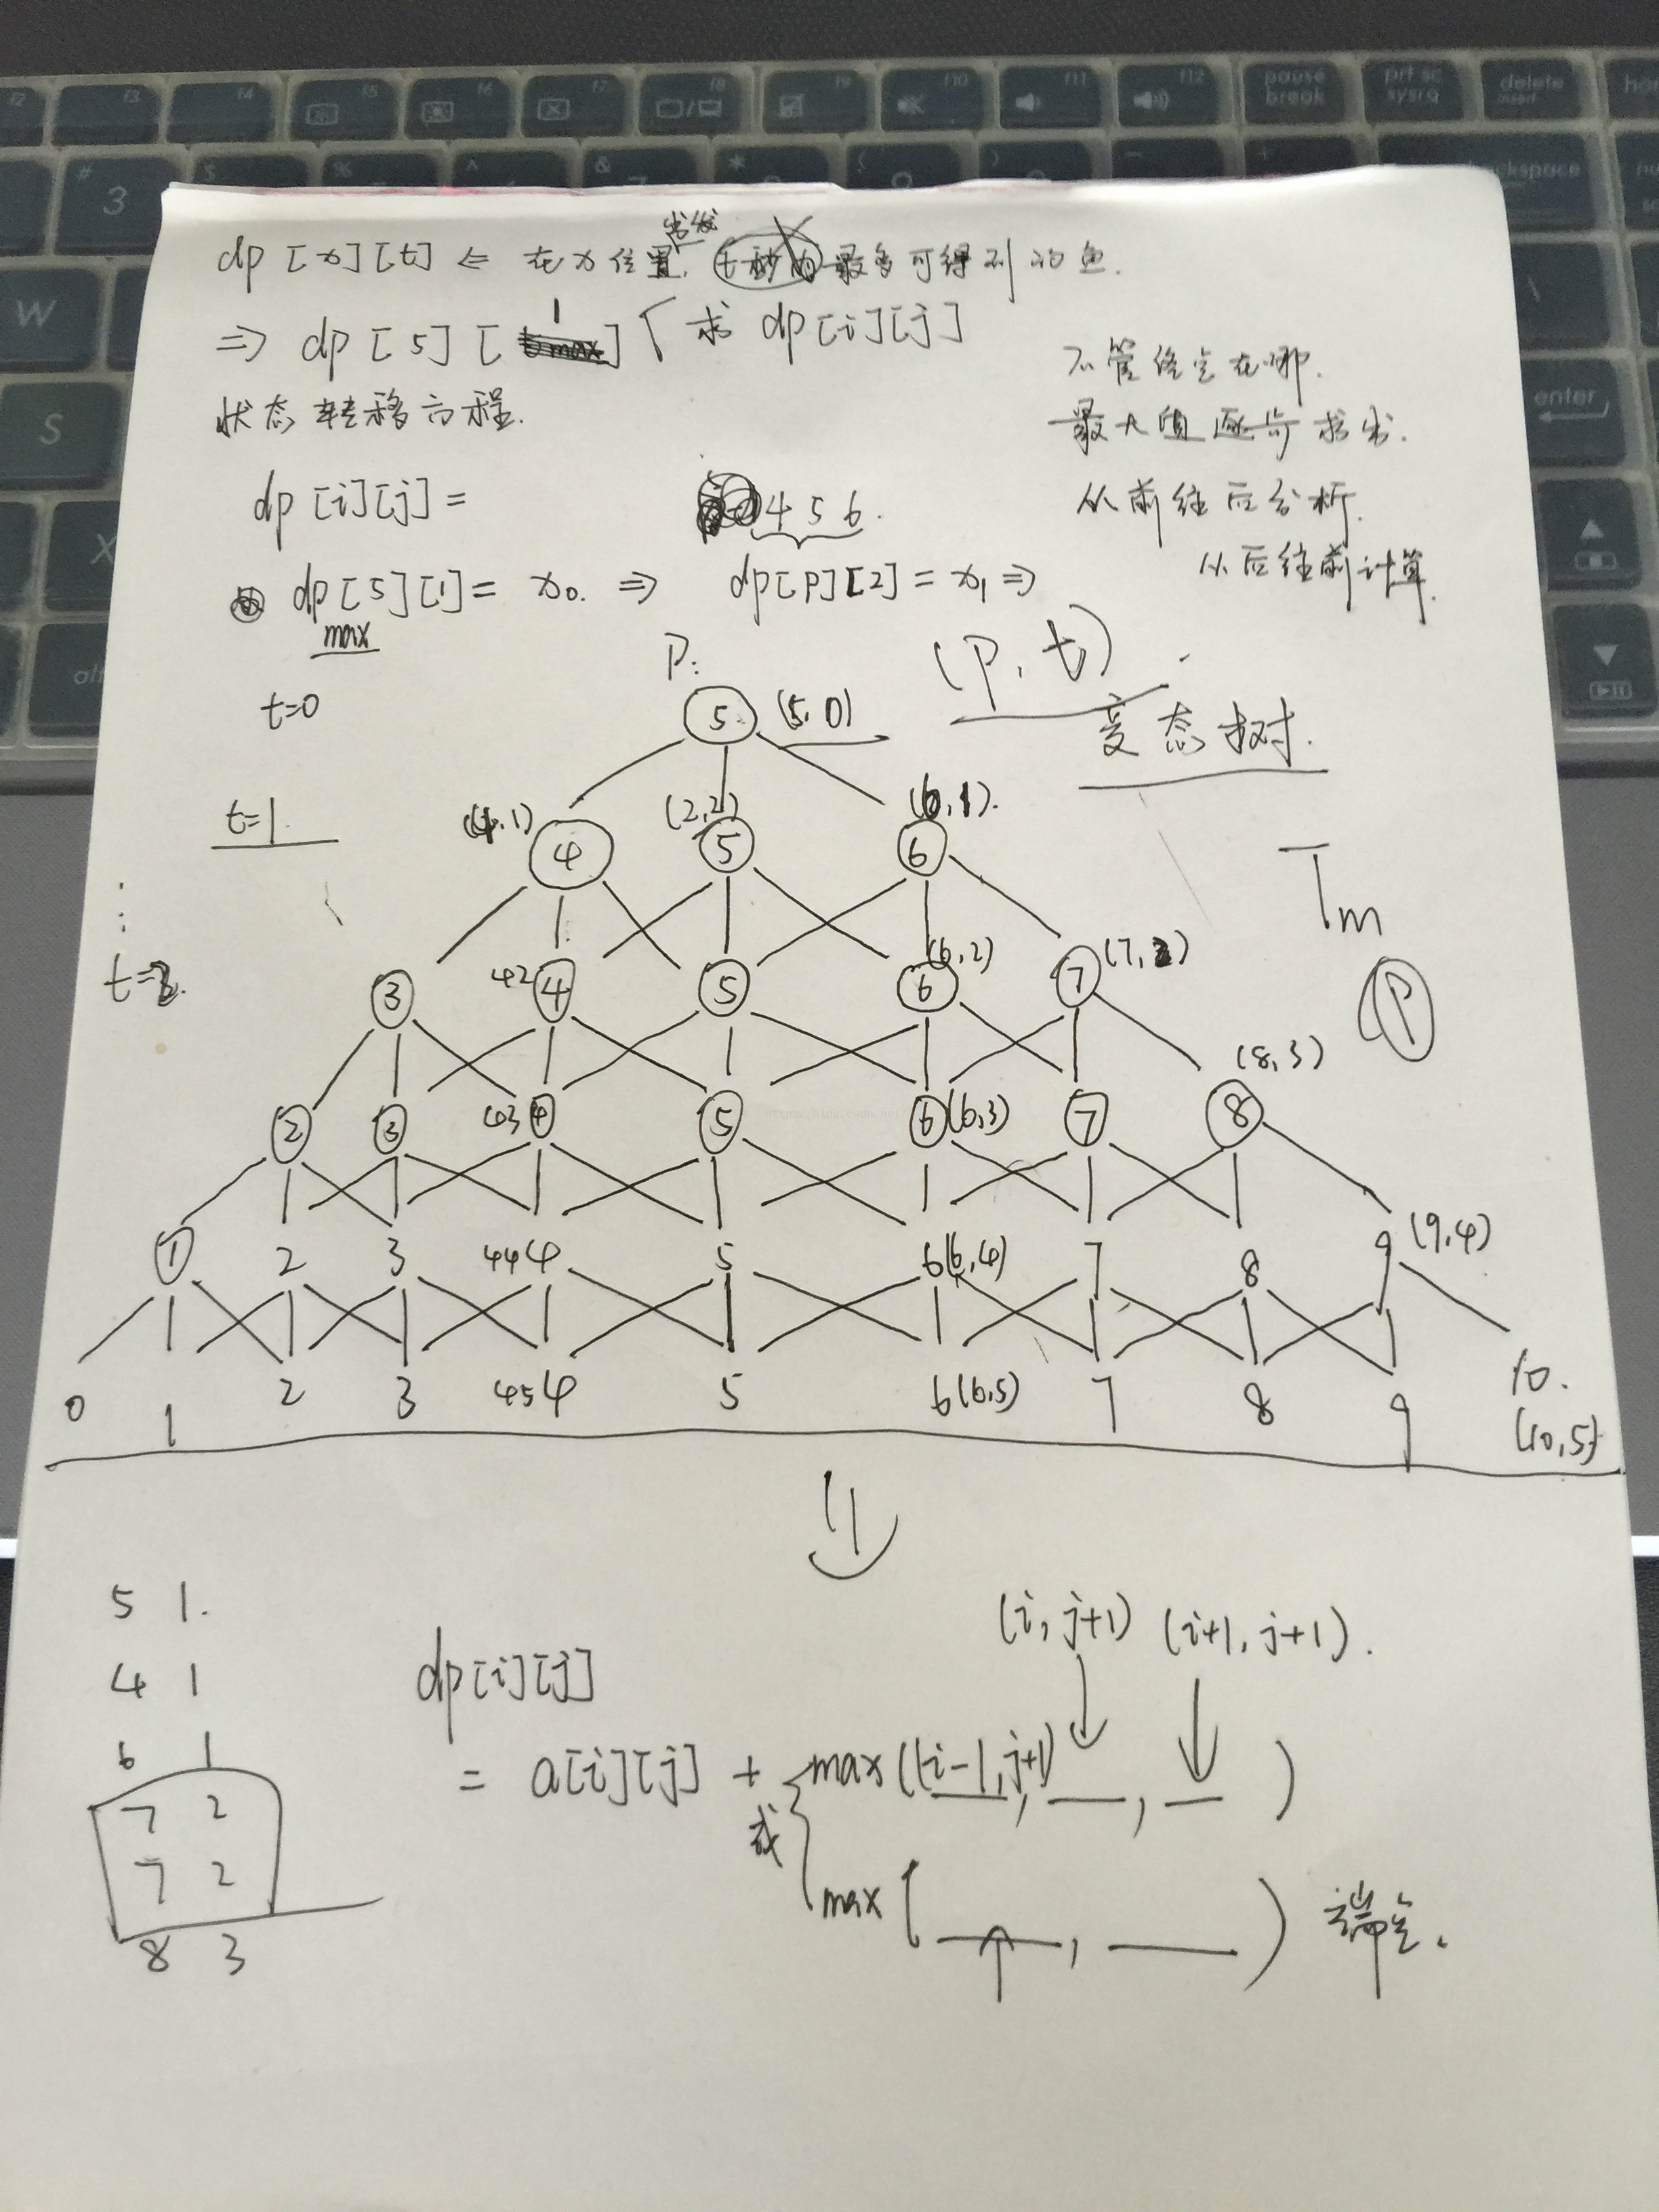 dp[x][t] ⇐ 在x位置出发, t秒内最多可得到的鱼.
⇒ dp[5][1] 求 dp[i][j]
状态转移方程.
不管终点在哪.
最大值逐步求出.
从前往后分析.
从后往前计算.
dp[i][j] =
4 5 6.
dp[5][1] = x0. ⇒ dp[P][2] = x1 ⇒
max
P:
(P, t)
变态树.
t=0
5 (5,0)
t=1
(4,1) (2,2) (6,1).
4 5 6
Tm
P
t=2.
42 (6,2) (7,2)
3 4 5 6 7
(8,3)
2 3 43 4 5 6 (6,3) 7 8
1 2 3 44 4 5 6 (6,4) 7 8 9 (9,4)
0 1 2 3 45 4 5 6 (6,5) 7 8 9 10.
(10,5)
5 1.
4 1
6 1
7 2
7 2
8 3
(i, j+1) (i+1, j+1).
dp[i][j]
= a[i][j] + max((i-1, j+1), __, __)
或
max(__, __) 端点.